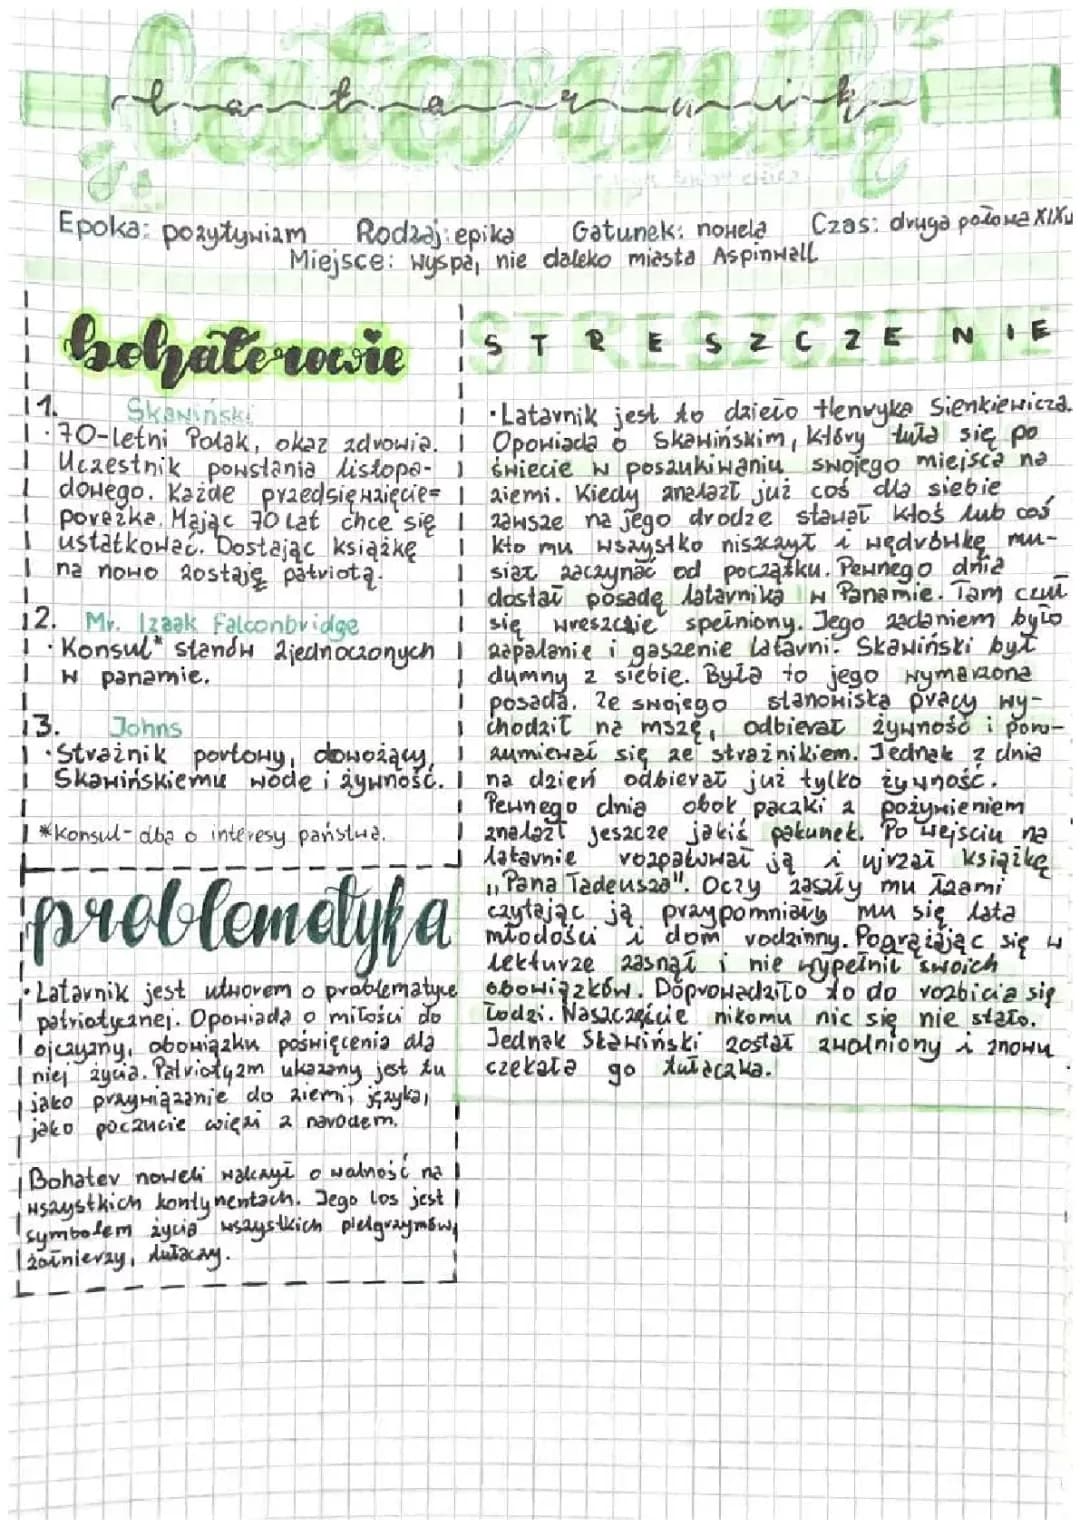 latarnik
Epoka: pozytywizm Rodzaj: epika Gatunek: nowela Czas: druga połowa XIXw
Miejsce: wyspa, nie daleko miasta Aspinwall
bohaterowie
1. Skawiński
·70-letni Polak, okaz zdrowia.
Uczestnik powstania listopa-
dowego. Każde przedsięwzięcie=
porażka. Mając 70 lat chce się
ustatkować. Dostając książkę
na nowo zostaję patriotą.
2. Mr. Izaak Falconbridge
·Konsul* stanów zjednoczonych
w panamie.
3. Johns
·Strażnik portowy, dowożący
Skawińskiemu wodę i żywność.
*konsul- dba o interesy państwa.
problematyka
·Latarnik jest utworem o problematyce
patriotycznej. Opowiada o miłości do
ojczyzny, obowiązku poświęcenia dla
niej życia. Patriotyzm ukazany jest tu
jako przywiązanie do ziemi, języka,
jako poczucie więzi z narodem.
Bohater noweli walczył o wolność na
wszystkich kontynentach. Jego los jest
symbolem życia wszystkich pielgrzymów,
żołnierzy, tułaczy.
STRESZCZENIE
·Latarnik jest to dzieło Henryka Sienkiewicza.
Opowiada o Skawińskim, który tuła się po
świecie w poszukiwaniu swojego miejsca na
ziemi. Kiedy znalazł już coś dla siebie
zawsze na jego drodze stawał ktoś lub coś
kto mu wszystko niszczył i wędrówkę mu-
siał zaczynać od początku. Pewnego dnia
dostał posadę latarnika w Panamie. Tam czuł
się wreszcie spełniony. Jego zadaniem było
zapalanie i gaszenie latarni. Skawiński był
dumny z siebie. Była to jego wymarzona
posada. Ze swojego stanowiska pracy wy-
chodził na mszę, odbierał żywność i poro-
zumiewał się ze strażnikiem. Jednak z dnia
na dzień odbierał już tylko żywność.
Pewnego dnia obok paczki z pożywieniem
znalazł jeszcze jakiś pakunek. Po wejściu na
latarnie rozpakował ją i ujrzał książkę
„Pana Tadeusza". Oczy zaszły mu łzami
czytając ją przypomniały mu się lata
młodości i dom rodzinny. Pogrążając się w
lekturze zasnął i nie wypełnił swoich
obowiązków. Doprowadziło to do rozbicia się
Łodzi. Naszczęście nikomu nic się nie stało.
Jednak Skawiński został zwolniony i znowu
czekała go tułaczka.